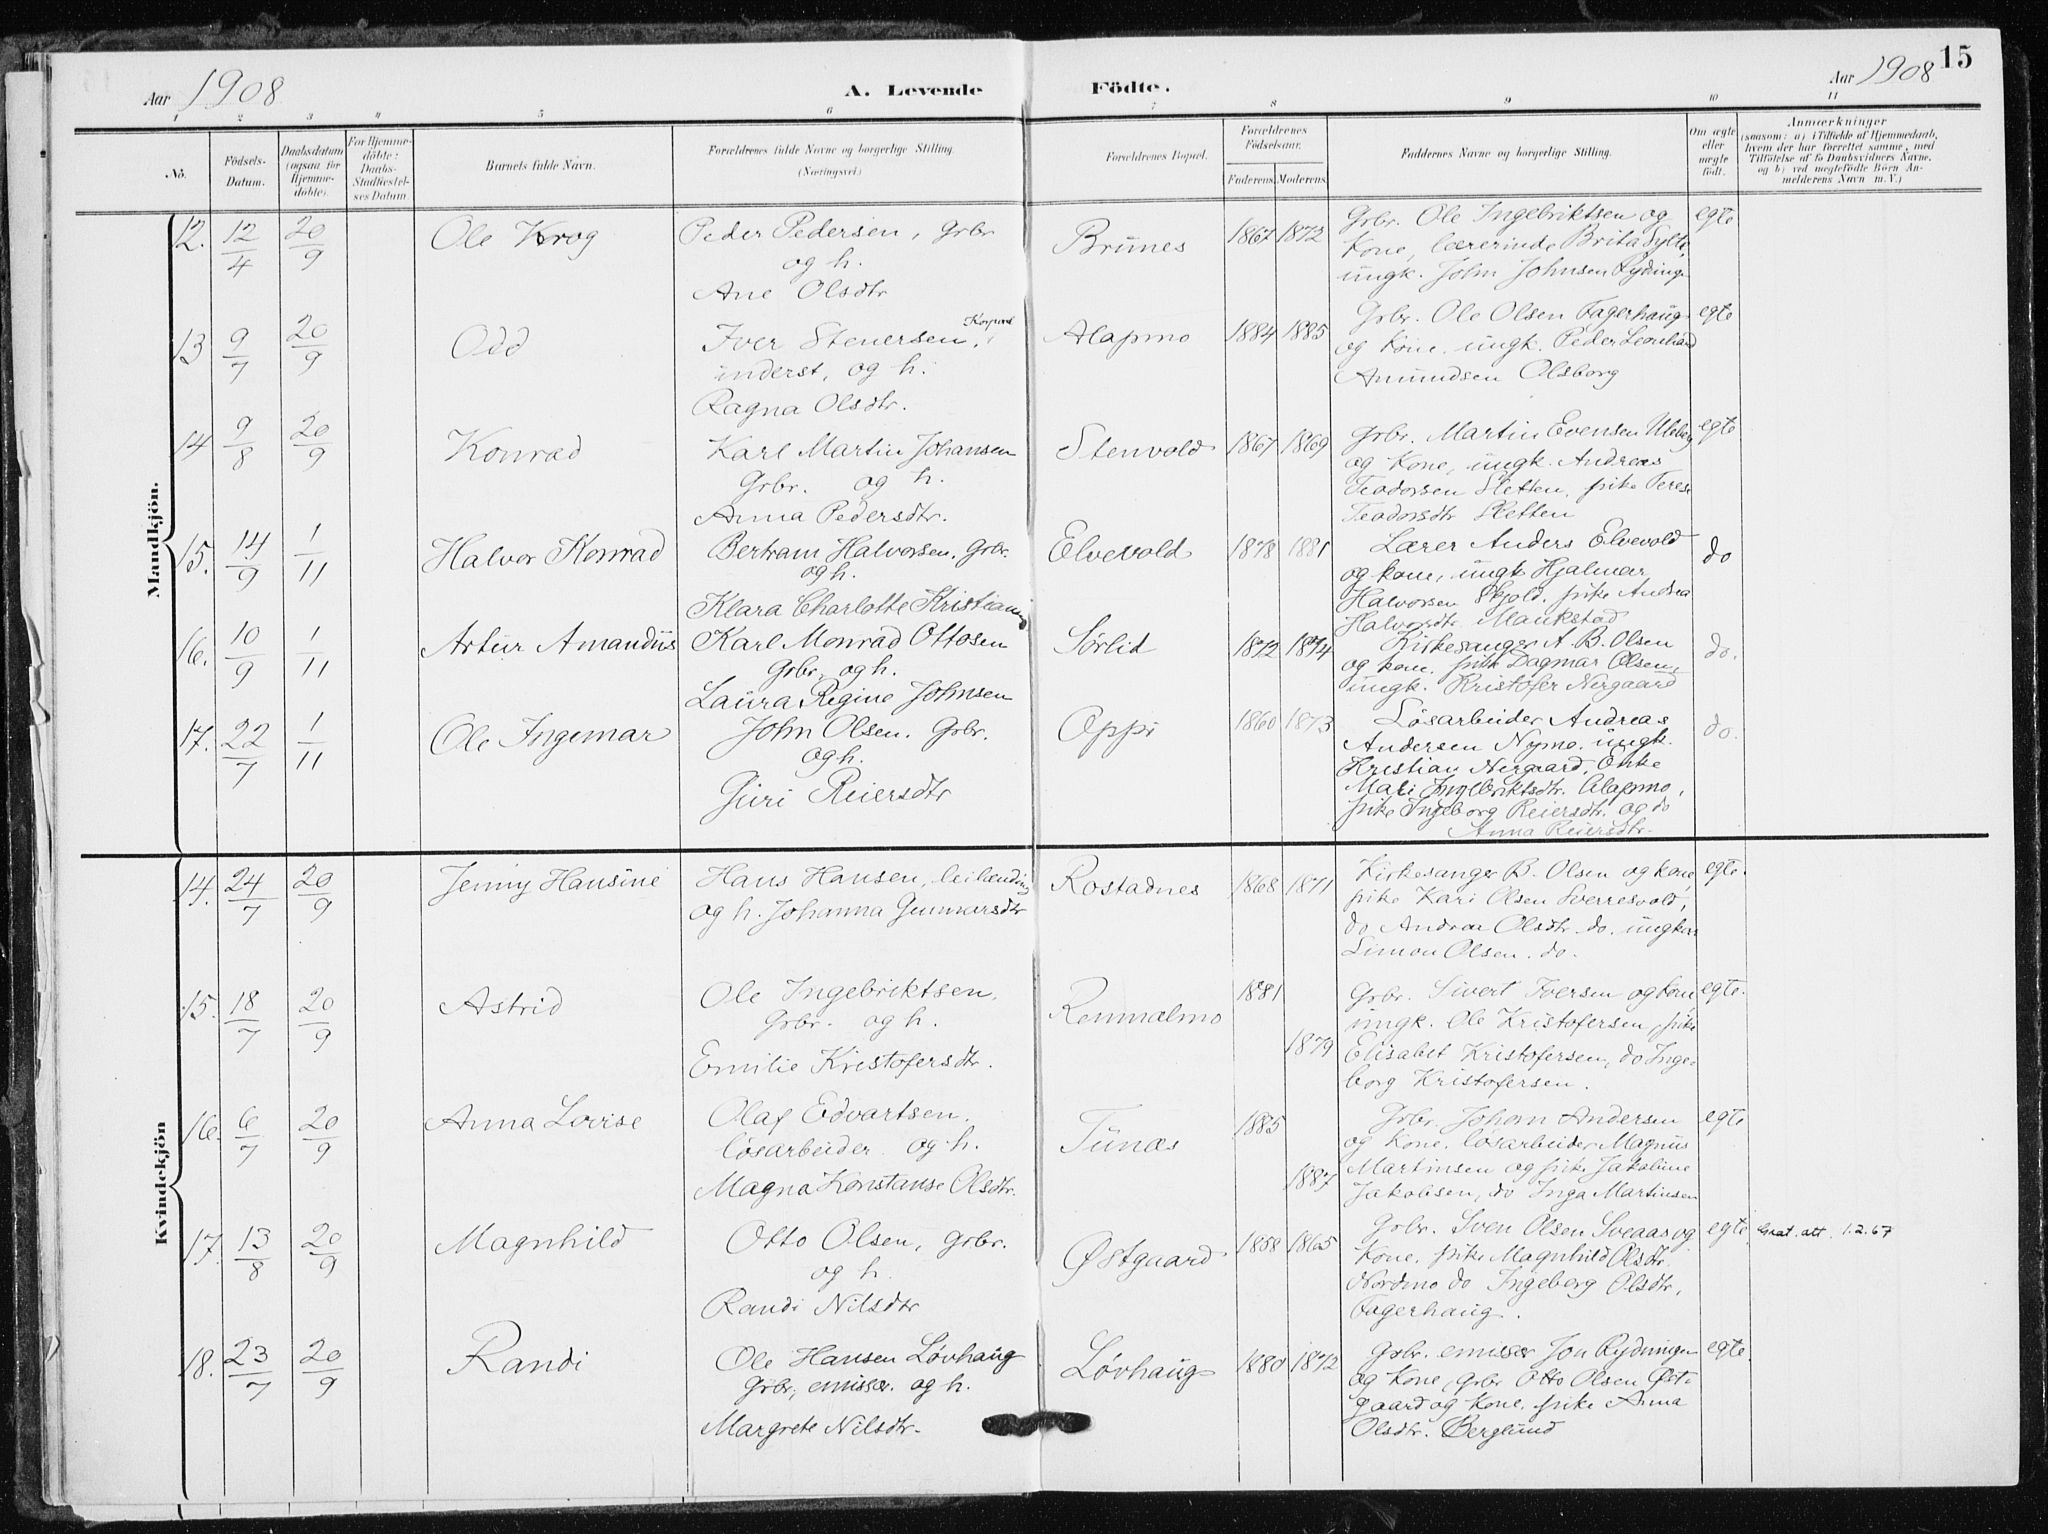 15
Aar 1908
A. Levende Födte.
Aar 1908
1 2 3 4 5 6 7 8 9 10 11
No.
Födsels-Datum.
Daabsdatum (ogsaa for Hjemmedöbte).
For Hjemmedöbte: Daabs-Stadfæstelses Datum
Barnets fulde Navn.
Forældrenes fulde Navne og borgerlige Stilling. (Næringsvei.)
Forældrenes Bopæl.
Forældrenes Födselsaar.
Faderens. Moderens.
Faddernes Navne og borgerlige Stilling.
Om ægte eller uægte födt.
Anmærkninger
(saasom: a) i Tilfælde af Hjemmedaab,
hvem der har forrettet samme, med
Tilföielse af to Daabsvidners Navne,
og b) ved uægtefödte Börn Anmelderens Navn m. V.)
Mandkjön.
12. 12/4 20/9 Ole Krog Peder Pedersen, grbr og h. Ane Olsdtr Brunes 1867 1872 Grbr. Ole Ingebriktsen og
Kone, lærerinde Brita Sylte,
ungk. John Johnsen Rydinge egte
13 9/7 20/9 Odd Iver Stenersen, Korporal
inderst, og h.
Ragna Olsdtr. Alapmo 1884 1885 Grbr. Ole Olsen Fagerhaug
og Kone. ungk. Peder Leonhard
Amundsen Olsborg egte
14 9/8 20/9 Konrad Karl Martin Johansen
Grbr. og h.
Anna Pedersdtr. Stenvold 1867 1869 Grbr. Martin Evensen
og Kone, ungk. Andreas
Teodorsen Sletten, pike Terese
Teodorsdtr Sletten egte
15. 14/9 1/11 Halvor Konrad Bertram Halvorsen. Grbr.
og h.
Klara Charlotte Elvevold 1878 1881 Lærer Anders Elvevold
og kone, ungk Hjalmar
Halvorsen Skjold. pike Andrea
Halvorsdtr. Maukstad do
16. 10/9 1/11 Artur Amandus Karl Monrad Ottosen
Grbr. og h.
Laura Regine Johnsen Sørlid 1872 1874 Kirkesanger A. B. Olsen
og kone. pike Dagmar Olsen,
ungk. Kristofer Nergaard do.
17. 22/7 1/11 Ole Ingemar John Olsen. Grbr.
og h.
Guri Reiersdtr Oppi 1860 1873 Løsarbeider Andreas
Andersen Nymo. ungk.
Kristian Nergaard, Enke
Mali Ingebriktsdtr. Alapmo,
pike Ingeborg Reiersdtr. og do
Anna Reiersdtr. do.
Kvindekjön
14. 24/7 20/9 Jenny Hansine Hans Hansen,
og h. Johanna Gunnarsdtr Rostadnes 1868 1871 Kirkesanger B. Olsen og kone,
pike Kari Olsen Sverresvold,
do Andrea Olsdtr. do. ungkar
Simon Olsen. do. egte.
15. 18/7 20/9 Astrid Ole Ingebriktsen,
Grbr. og h.
Emilie Kristofersdtr. Renmælmo 1881 1879 Grbr. Sivert Iversen og kone,
ungk. Ole Kristofersen, pike
Elisabet Kristofersen, do Inge-
borg Kristofersen. egte.
16. 6/7 20/9 Anna Lovise Olaf Edvartsen,
løsarbeider og h.
Magna Konstanse Olsdtr. Tunæs 1885 1887 Grbr. Johan Andersen
og Kone. løsarbeider Magnus
Martinsen og pike Jakobine
Jakobsen, do Inga Martinsen egte
17. 13/8 20/9 Magnhild Otto Olsen, grbr.
og h.
Randi Nilsdtr Østgaard 1858 1865 Grbr. Sven Olsen Sveaas og
Kone, pike Magnhild Olsdtr
Nordmo do Ingeborg Olsdtr,
Fagerhaug. egte att. 1.2.67
18. 23/7 20/9 Randi Ole Hansen Løvhaug
Grbr, emissær. og h.
Margrete Nilsdtr. Løvhaug 1880 1872 Grbr. emissær Jon Rydningen
og Kone, grbr Otto Olsen Øst-
gaard og Kone. pike Anna
Olsdtr. Berglund egte.